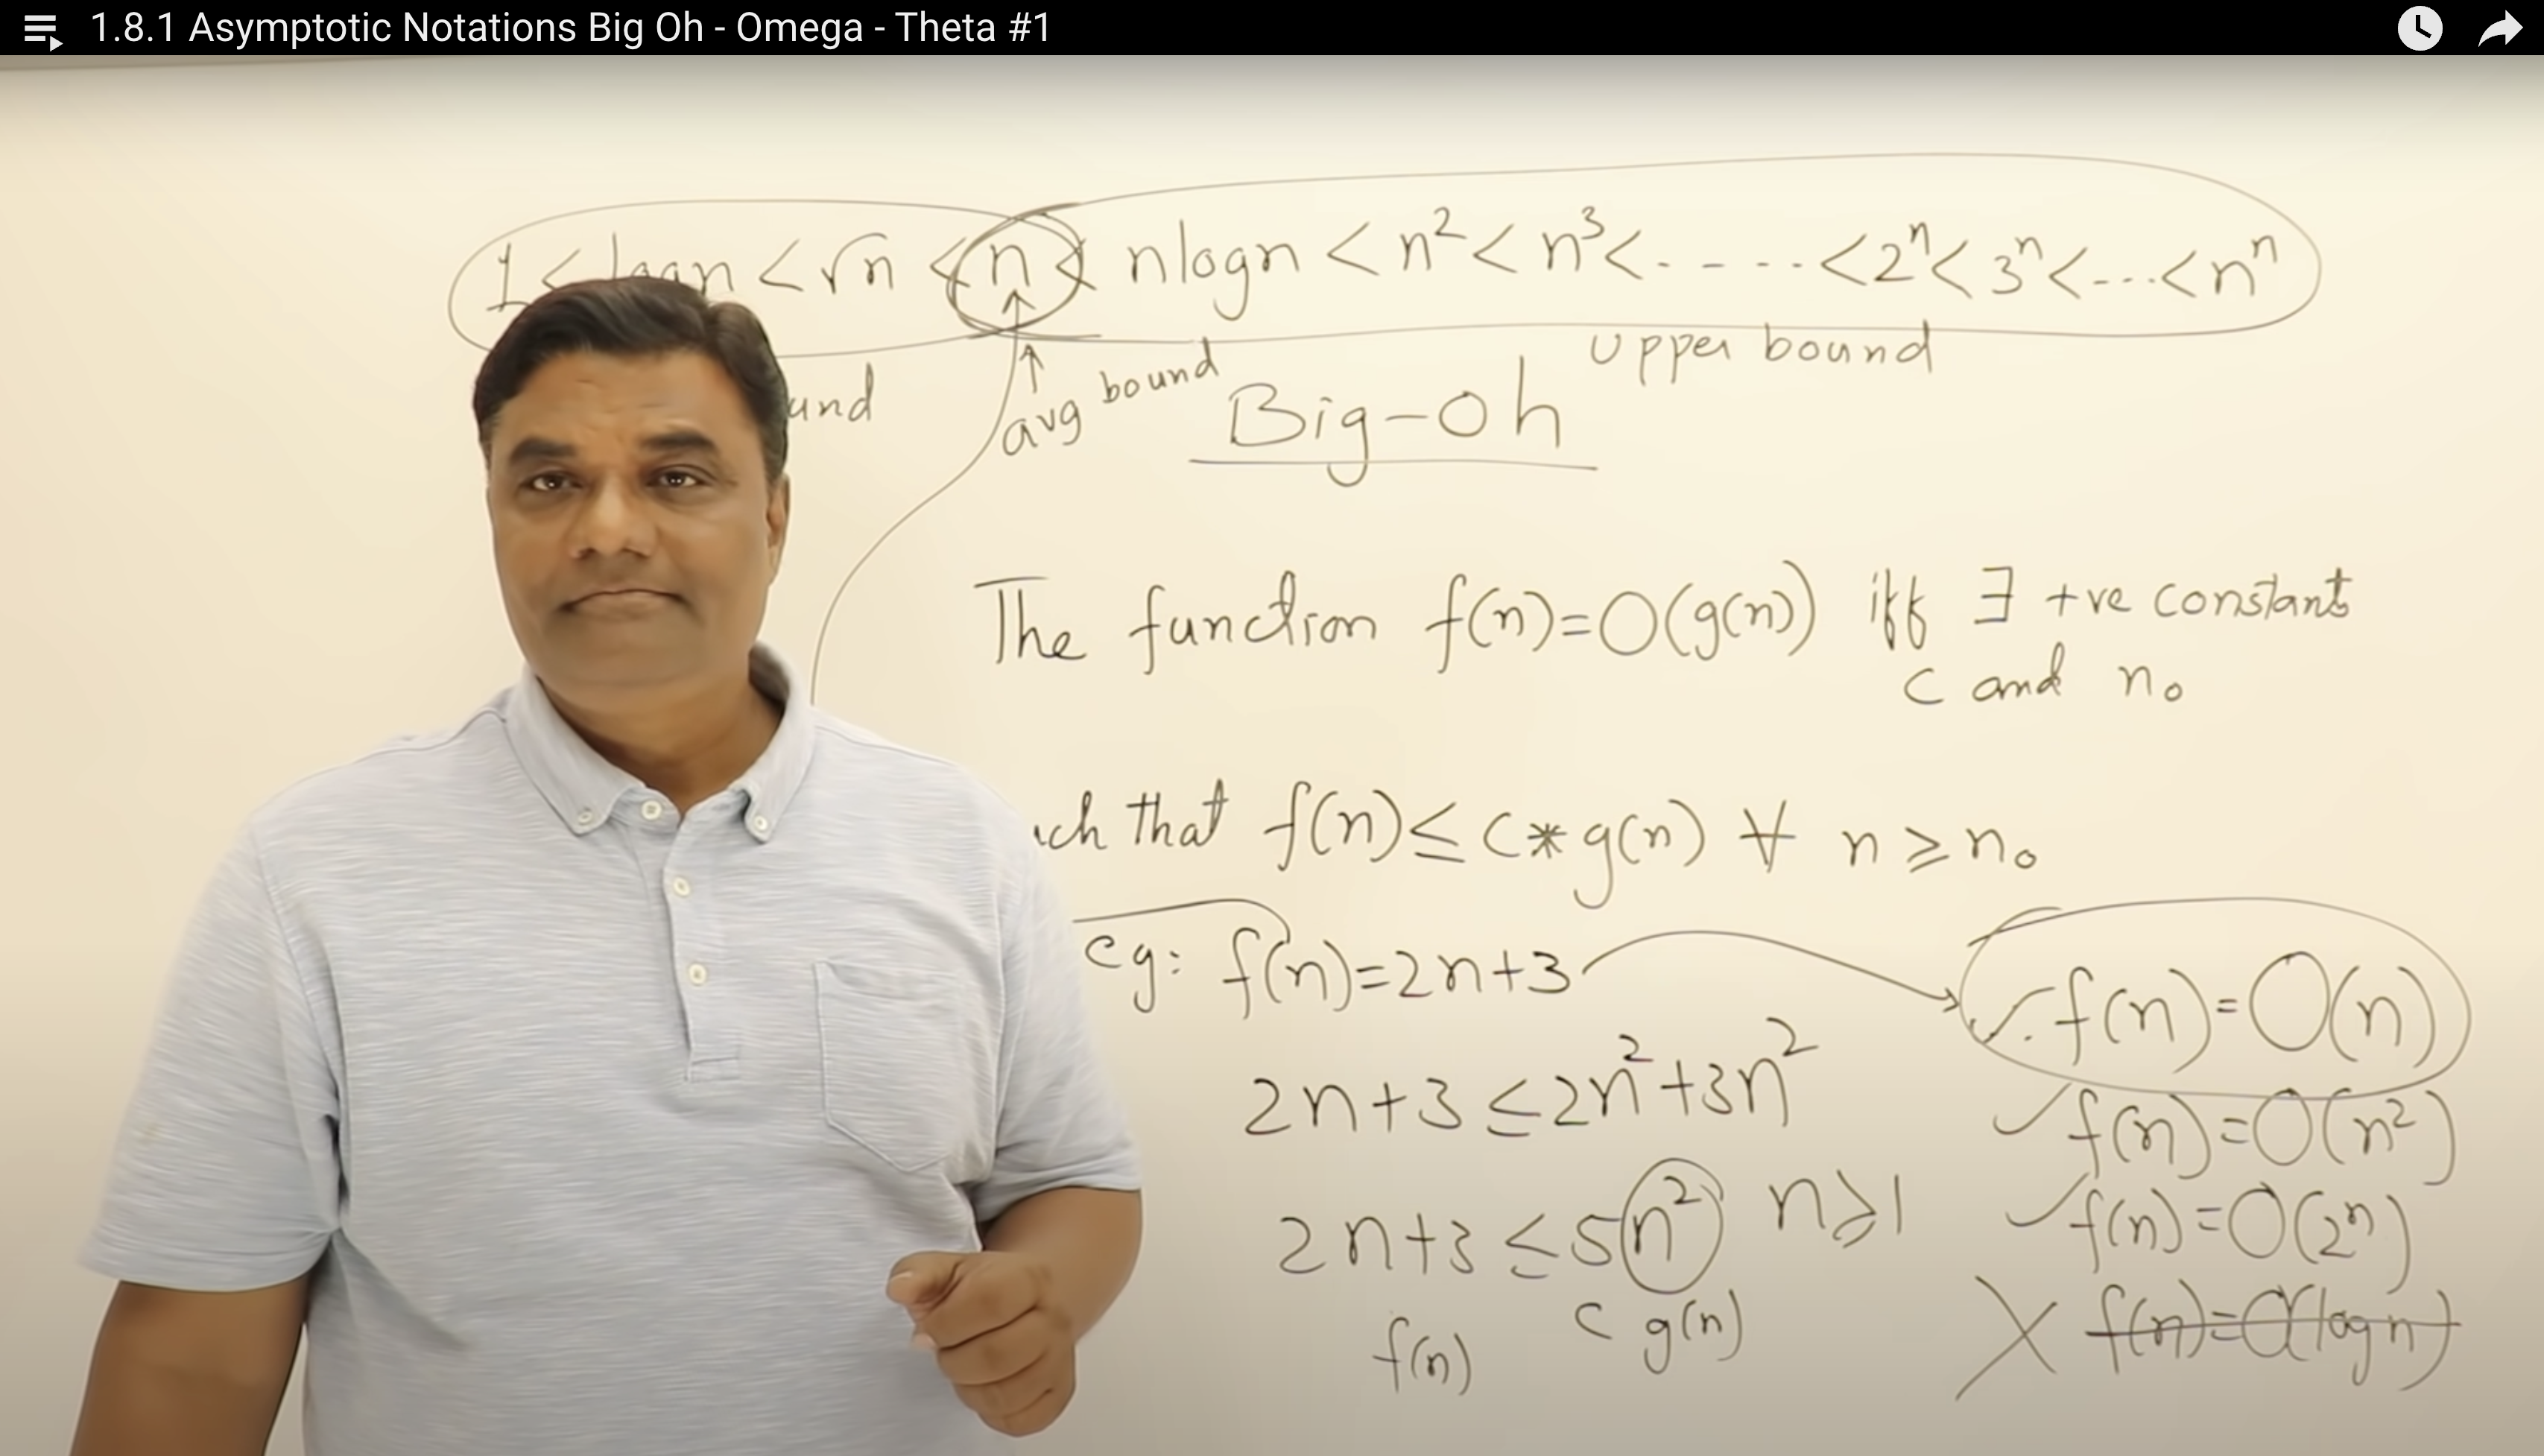 1.8.1 Asymptotic Notations Big Oh - Omega - Theta #1
1 < logn < √n < n < nlogn < n² < n³ < - - - - - < 2ⁿ < 3ⁿ < - - - < nⁿ
und
avg bound
Upper bound
Big-Oh
The function f(n)=O(g(n)) iff ∃ +ve constant
c and n₀
uch that f(n) ≤ c*g(n) ∀ n ≥ n₀
eg: f(n)=2n+3
2n+3 ≤ 2n²+3n²
2n+3 ≤ 5n² n≥1
f(n) c g(n)
✓ f(n)=O(n)
✓ f(n)=O(n²)
✓ f(n)=O(2ⁿ)
X f(n)=O(logn)